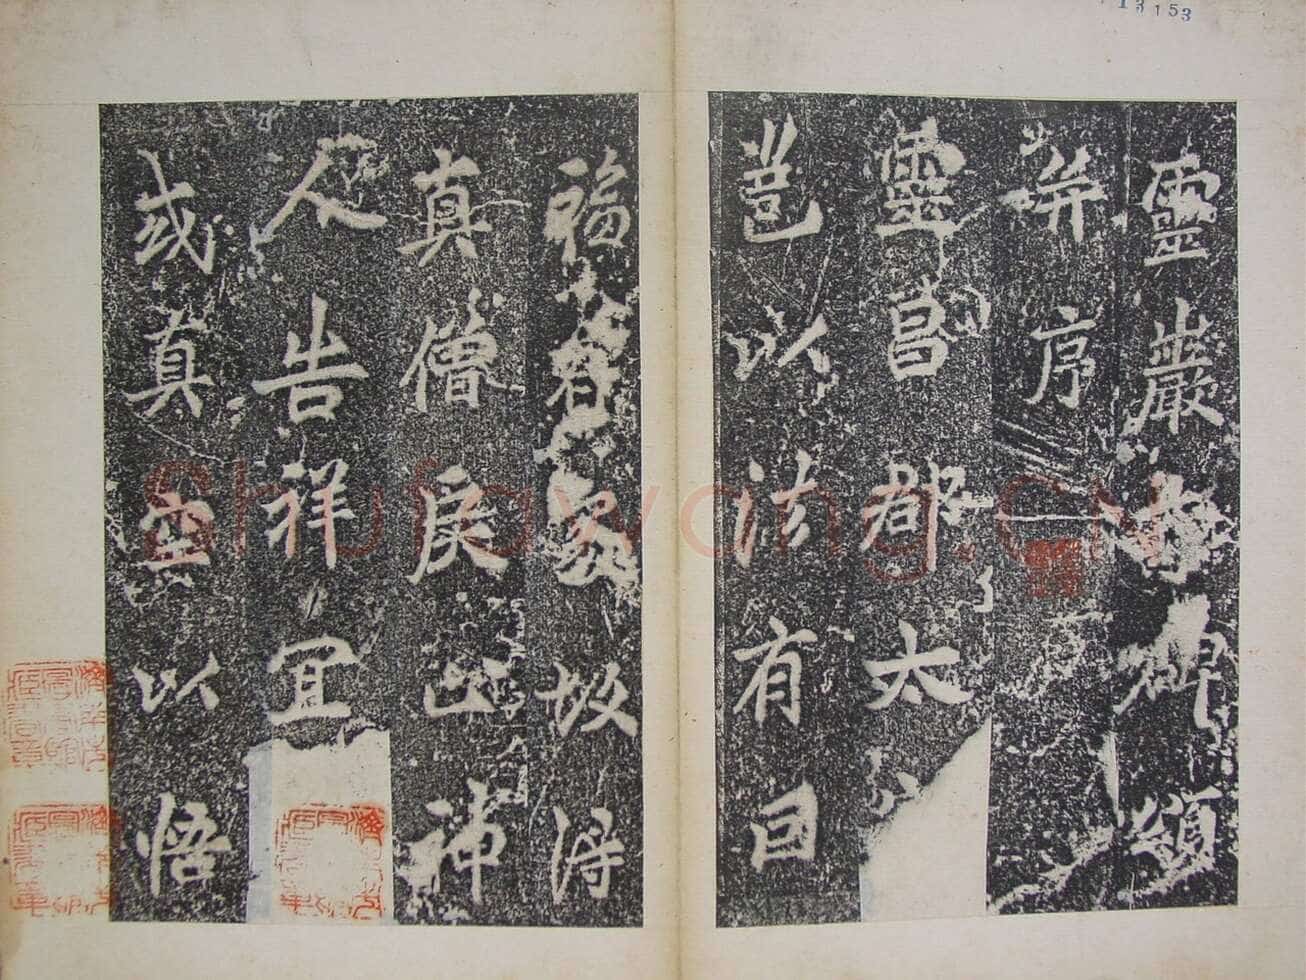 13153
靈巖碑頌
并序
靈昌郡太
邕以法有因
福有故得
真僧戾止神
人告祥宜
或真空以悟
shufawang.CN